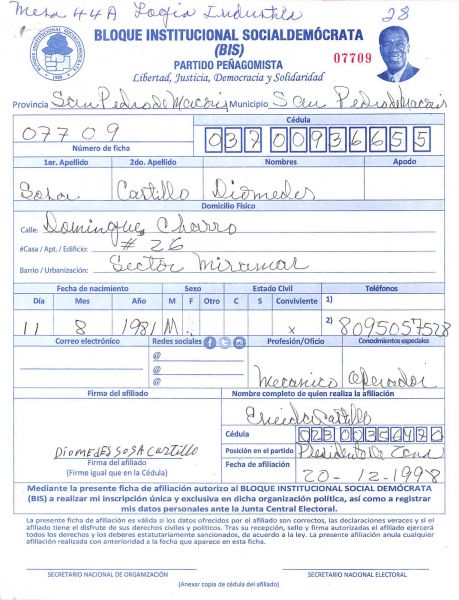 Mesa 44A Logia Industria 28
BLOQUE INSTITUCIONAL SOCIALDEMÓCRATA
(BIS)
PARTIDO PEÑAGOMISTA
07709
Libertad, Justicia, Democracia y Solidaridad
Provincia San Pedro de Macoris Municipio San Pedro de Macoris
07709
Número de ficha
Cédula
03700936655
1er. Apellido 2do. Apellido Nombres Apodo
Sosa Castillo Diomedes
Domicilio Físico
Calle: Domingue Charro
#Casa / Apt. / Edificio: # 26
Barrio / Urbanización: Sector Miramar
Fecha de nacimiento Sexo Estado Civil Teléfonos
Día Mes Año M F Otro C S Conviviente 1)
11 8 1981 M x 2) 8095057528
Correo electrónico Redes sociales Profesión/Oficio Conocimientos especiales
@
@
@
Mecanico Operador
Firma del afiliado
Nombre completo de quien realiza la afiliación
Castillo
Cédula
Posición en el partido Presidente De Zona
Fecha de afiliación
20-12-1998
DIOMEDES SOSA Castillo
Firma del afiliado
(Firme igual que en la Cédula)
Mediante la presente ficha de afiliación autorizo al BLOQUE INSTITUCIONAL SOCIAL DEMÓCRATA
(BIS) a realizar mi inscripción única y exclusiva en dicha organización política, así como a registrar
mis datos personales ante la Junta Central Electoral.
La presente ficha de afiliación es válida si los datos ofrecidos por el afiliado son correctos, las declaraciones veraces y si el
afiliado tiene el disfrute de sus derechos civiles y políticos. Tras su recepción, sello y firma autorizadas el afiliado ejercerá
todos los derechos y los deberes estatutariamente sancionados, de acuerdo a la ley. La presente afiliación anula cualquier
afiliación realizada con anterioridad a la fecha que aparece en esta ficha.
SECRETARIO NACIONAL DE ORGANIZACIÓN SECRETARIO NACIONAL ELECTORAL
(Anexar copia de cédula del afiliado)